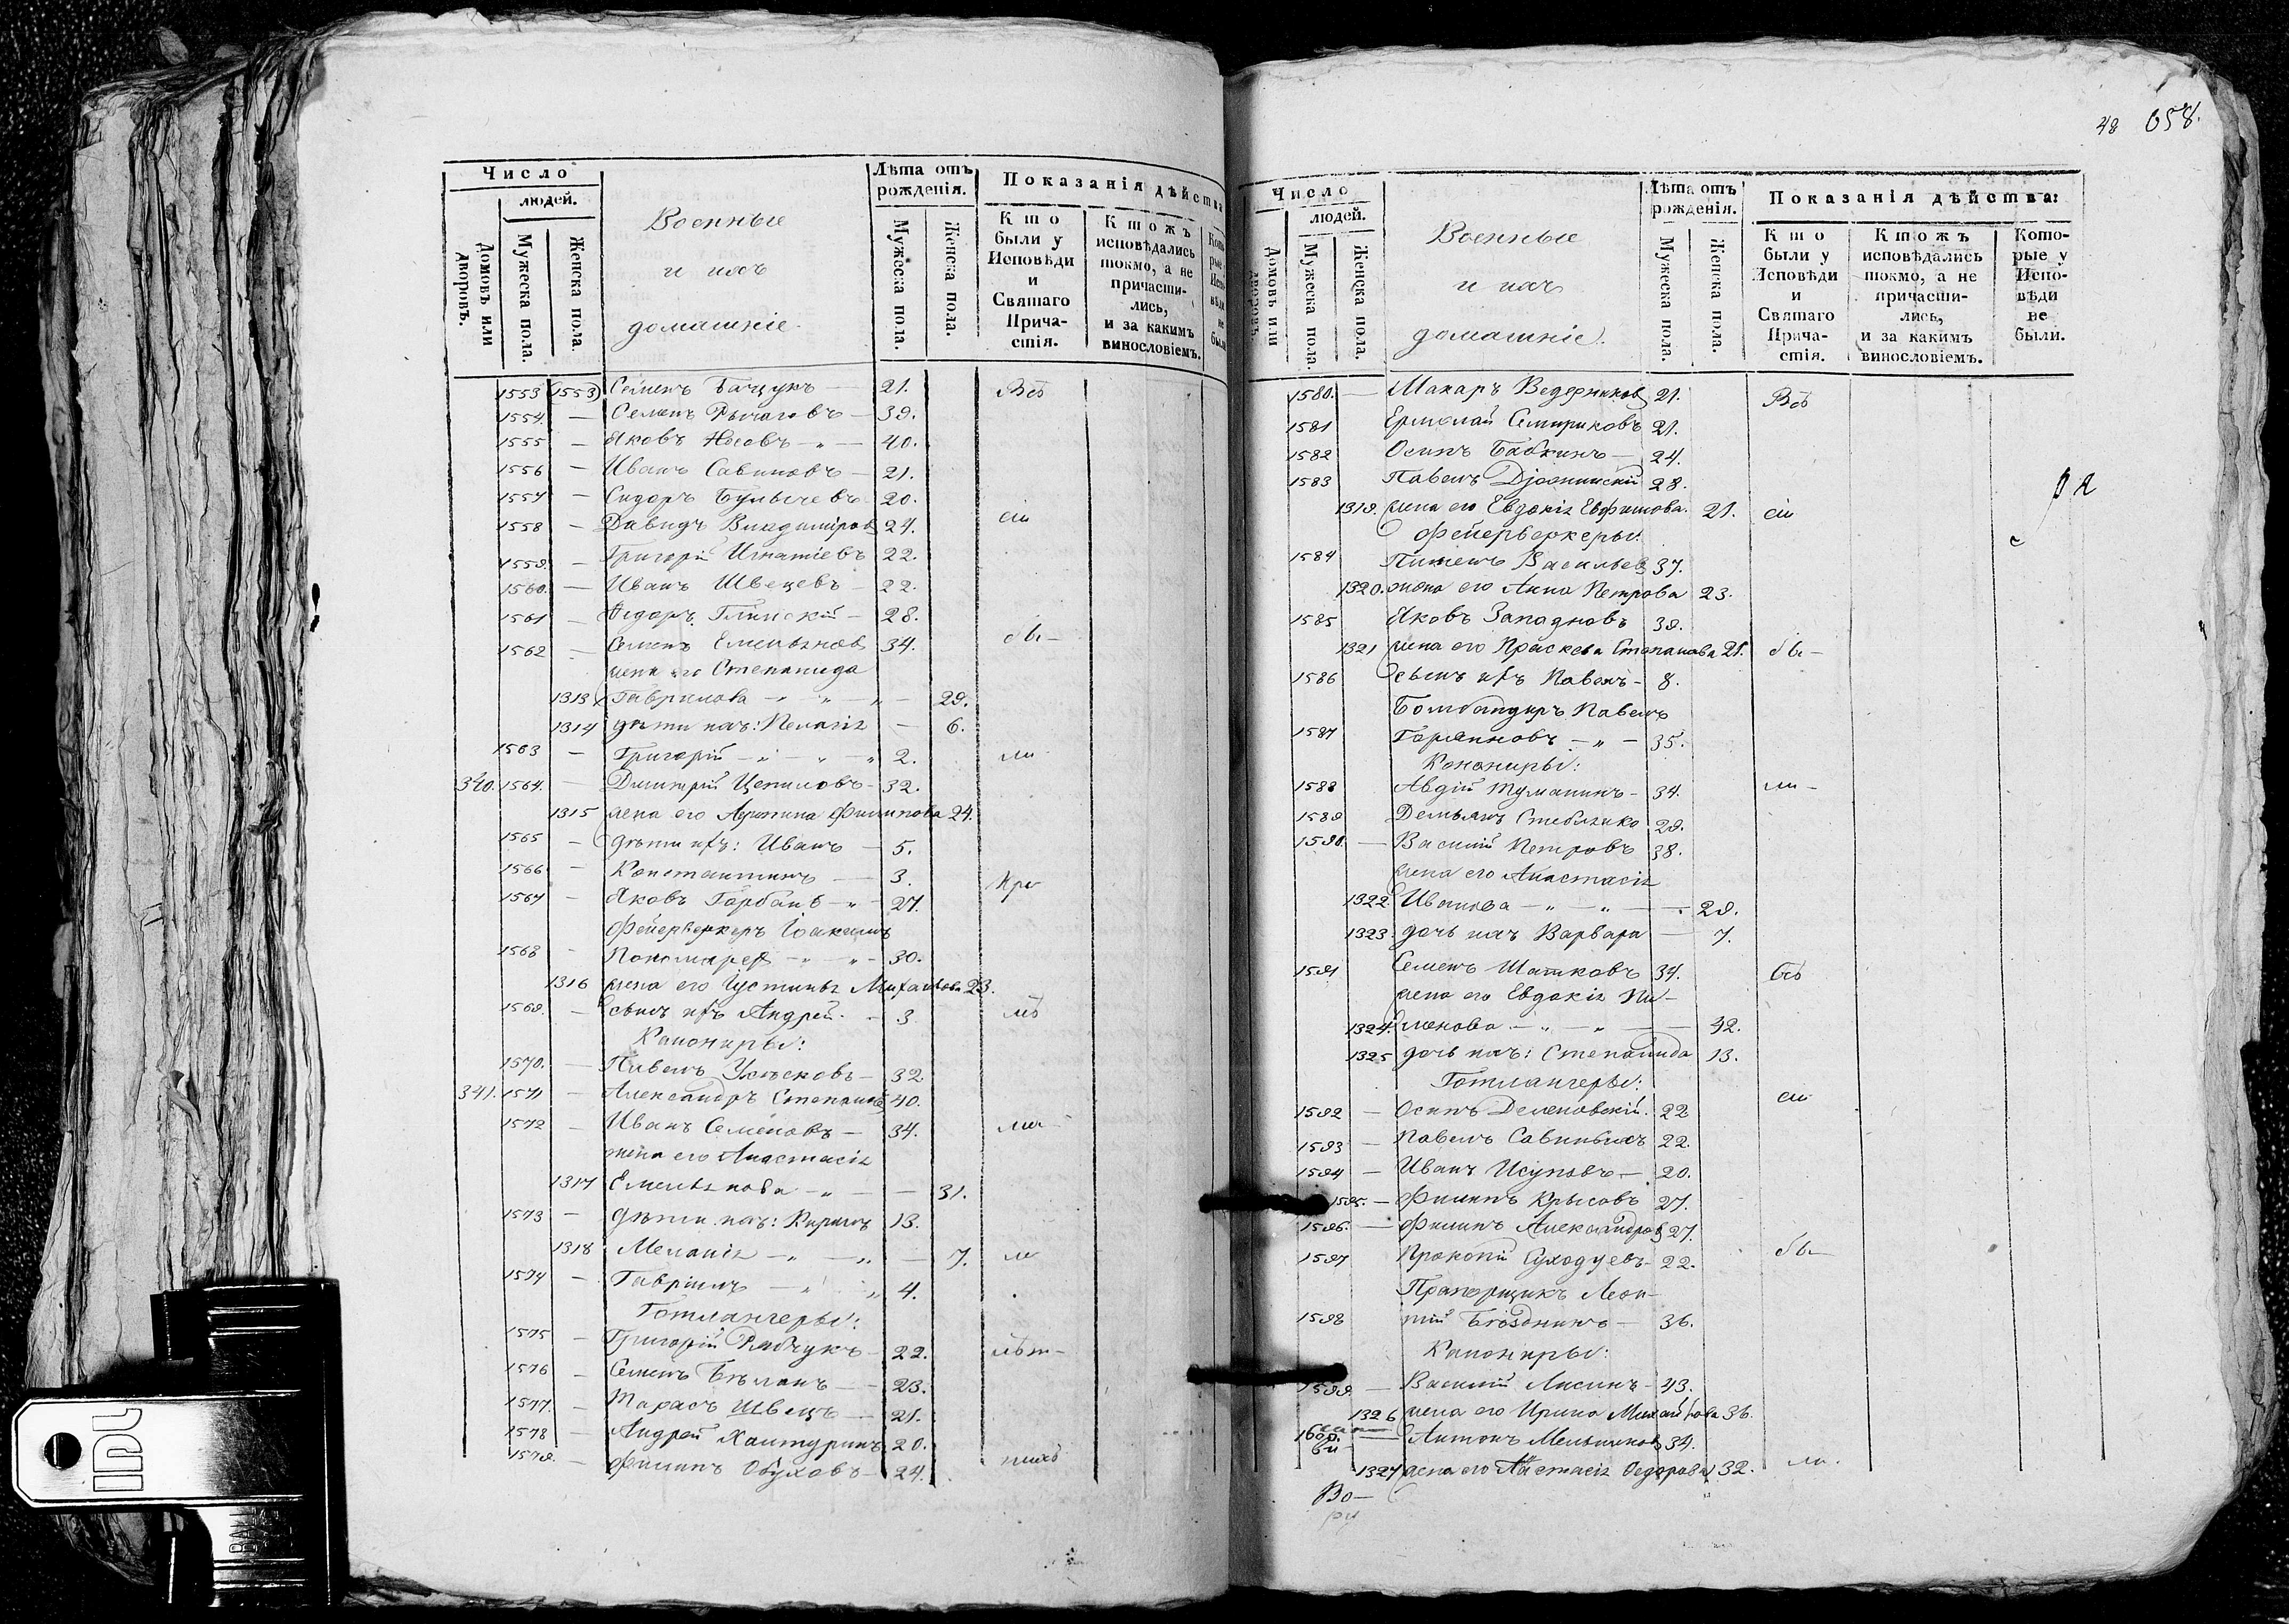 Число
людей.
Домовъ или дворовъ.
Мужеска пола.
Женска пола.
Военные
и ихъ
домашніе.
Лѣта отъ рожденія.
Мужеска пола.
Женска пола.
Показанія дѣйства
Кто были у Исповѣди и Святаго Причастія.
Ктожъ исповѣдались токмо, а не причасти-лись, и за какимъ винословіемъ.
1553 1553 Семенъ 21. Всѣ
1554. — Семенъ Рычаговъ — 39.
1555 — Яковъ Носовъ — „ — 40.
1556 — Иванъ Савиновъ — 21.
1557 — Сидоръ Булычевъ 20.
1558 — Давидъ Владиміровъ 27. сіи
1559. — Григорій Игнатіевъ 22.
1560. — Иванъ Швецевъ — 22.
1561 — Ѳедоръ Глинскій — 28.
1562 — Семенъ Емельяновъ 34. бы–
жена его Степанида
1313 Гаврилова — „ — 29.
1314 дѣти ихъ: Пелагія — 6.
1563 — Григорій — „ — „ 2. ли
340. 1564. — Димитрій Цепиловъ 32.
1315 жена его Филипова 24.
1565 — дѣти ихъ: Иванъ — 5.
1566 — Константинъ — 3. при
1567 — Яковъ Горбань — „ 27.
Фейерверкеръ Іоакимъ
1568 — Пономарев — „ — 30.
1316 жена его Іустинья Михайлова 23.
1569. — сынъ ихъ Андрей — 3
Канониры:
1570. — Павелъ 32.
341. 1571 — Александръ Степановъ 40.
1572 — Иванъ Семеновъ — 34.
жена его Анастасія
1317 Емельянова — „ — 31.
1573 — дѣти ихъ: Кирилъ 13.
1318 Меланія — „ — „ — 7.
1574 — Гавріилъ — „ 4.
Готлангеры:
1575 — Григорій Рябчукъ 22.
1576 — Семенъ Бѣланъ — 23.
1577. — Тарасъ Швецъ — 21.
1578 — Андрей Хантуринъ 20.
1579. — Филипъ Обуховъ — 24.
48 658.
Число
людей.
Домовъ или дворовъ.
Мужеска пола.
Женска пола.
Военные
и ихъ
домашніе.
Лѣта отъ рожденія.
Мужеска пола.
Женска пола.
Показанія дѣйства:
Кто были у Исповѣди и Святаго Прича-стія.
Ктожъ исповѣдались токмо, а не причасти-лись, и за какимъ винословіемъ.
Кото-рые у Испо-вѣди не были.
1580. — Макаръ Ведерников 21. Всѣ
1581 Ермолай Семириковъ 21.
1582 Осипъ Бабкинъ — 24.
1583 Павелъ 28.
1319. жена его Евдокія Евфимова. 21. сіи
Фейерверкеры:
1584 Пименъ Васильев 37.
1320. жена его Анна Петрова 23.
1585 Яковъ Западновъ 39.
1321 жена его Праскева Степанова 21. бы–
1586 сынъ ихъ Павелъ — 8.
Бомбандиръ Павелъ
1587 Горяиновъ — „ — 35.
Канониры:
1588 Авдій Туманинъ — 34. ли–
1589 Демьянъ 29.
1590. — Василій Петровъ 38.
жена его Анастасія
1322. Иванова — „ — „ — 29.
1323. дочь ихъ Варвара — 7.
1591 Семенъ Шатковъ 37.
жена его Евдокія Пи–
1324. менова — „ — „ — 42.
1325 дочь ихъ: Степанида 13.
Готлангеры:
1592 — Осипъ Деленовскій. 22 сіи
1593 — Павелъ 22.
1594 — Иванъ Исуповъ — 20.
1595. — Филипъ Крысовъ 27.
1596. — Филипъ Александров 27.
1597 Прокопій Суходуевъ 22. бы–
Прапорщикъ Леон–
1598 тій 36.
Канониры:
1599. — Василій Лисинъ — 43.
1326 жена его Ирина Михайлова 36.
1600. — Антонъ Мельников 34.
1327 жена его Анастасія Ѳедорова 32. ли.
Во–